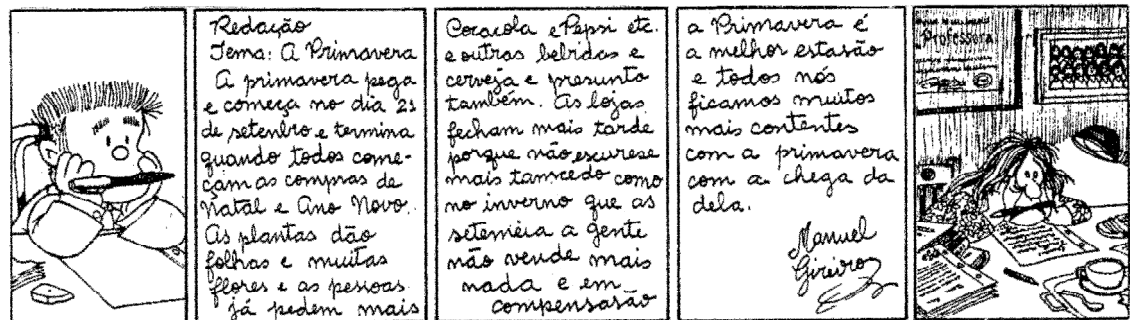 Redação
Tema: A Primavera
A primavera pega
e começa no dia 21
de setenbro e termina
quando todos come-
çam as compras de
Natal e Ano Novo.
As plantas dão
folhas e muitas
flores e as pessoas
já pedem mais
Cocacola e Pepsi etc.
e outras bebidas e
cerveja e presunto
também. As lojas
fecham mais tarde
porque não escurese
mais tamcedo como
no inverno que as
seteméia a gente
não vende mais
nada e em
compensasão
a Primavera é
a melhor estasão
e todos nós
ficamos muitos
mais contentes
com a primavera
com a chega da
dela.
Manuel
Gireiro
Professora